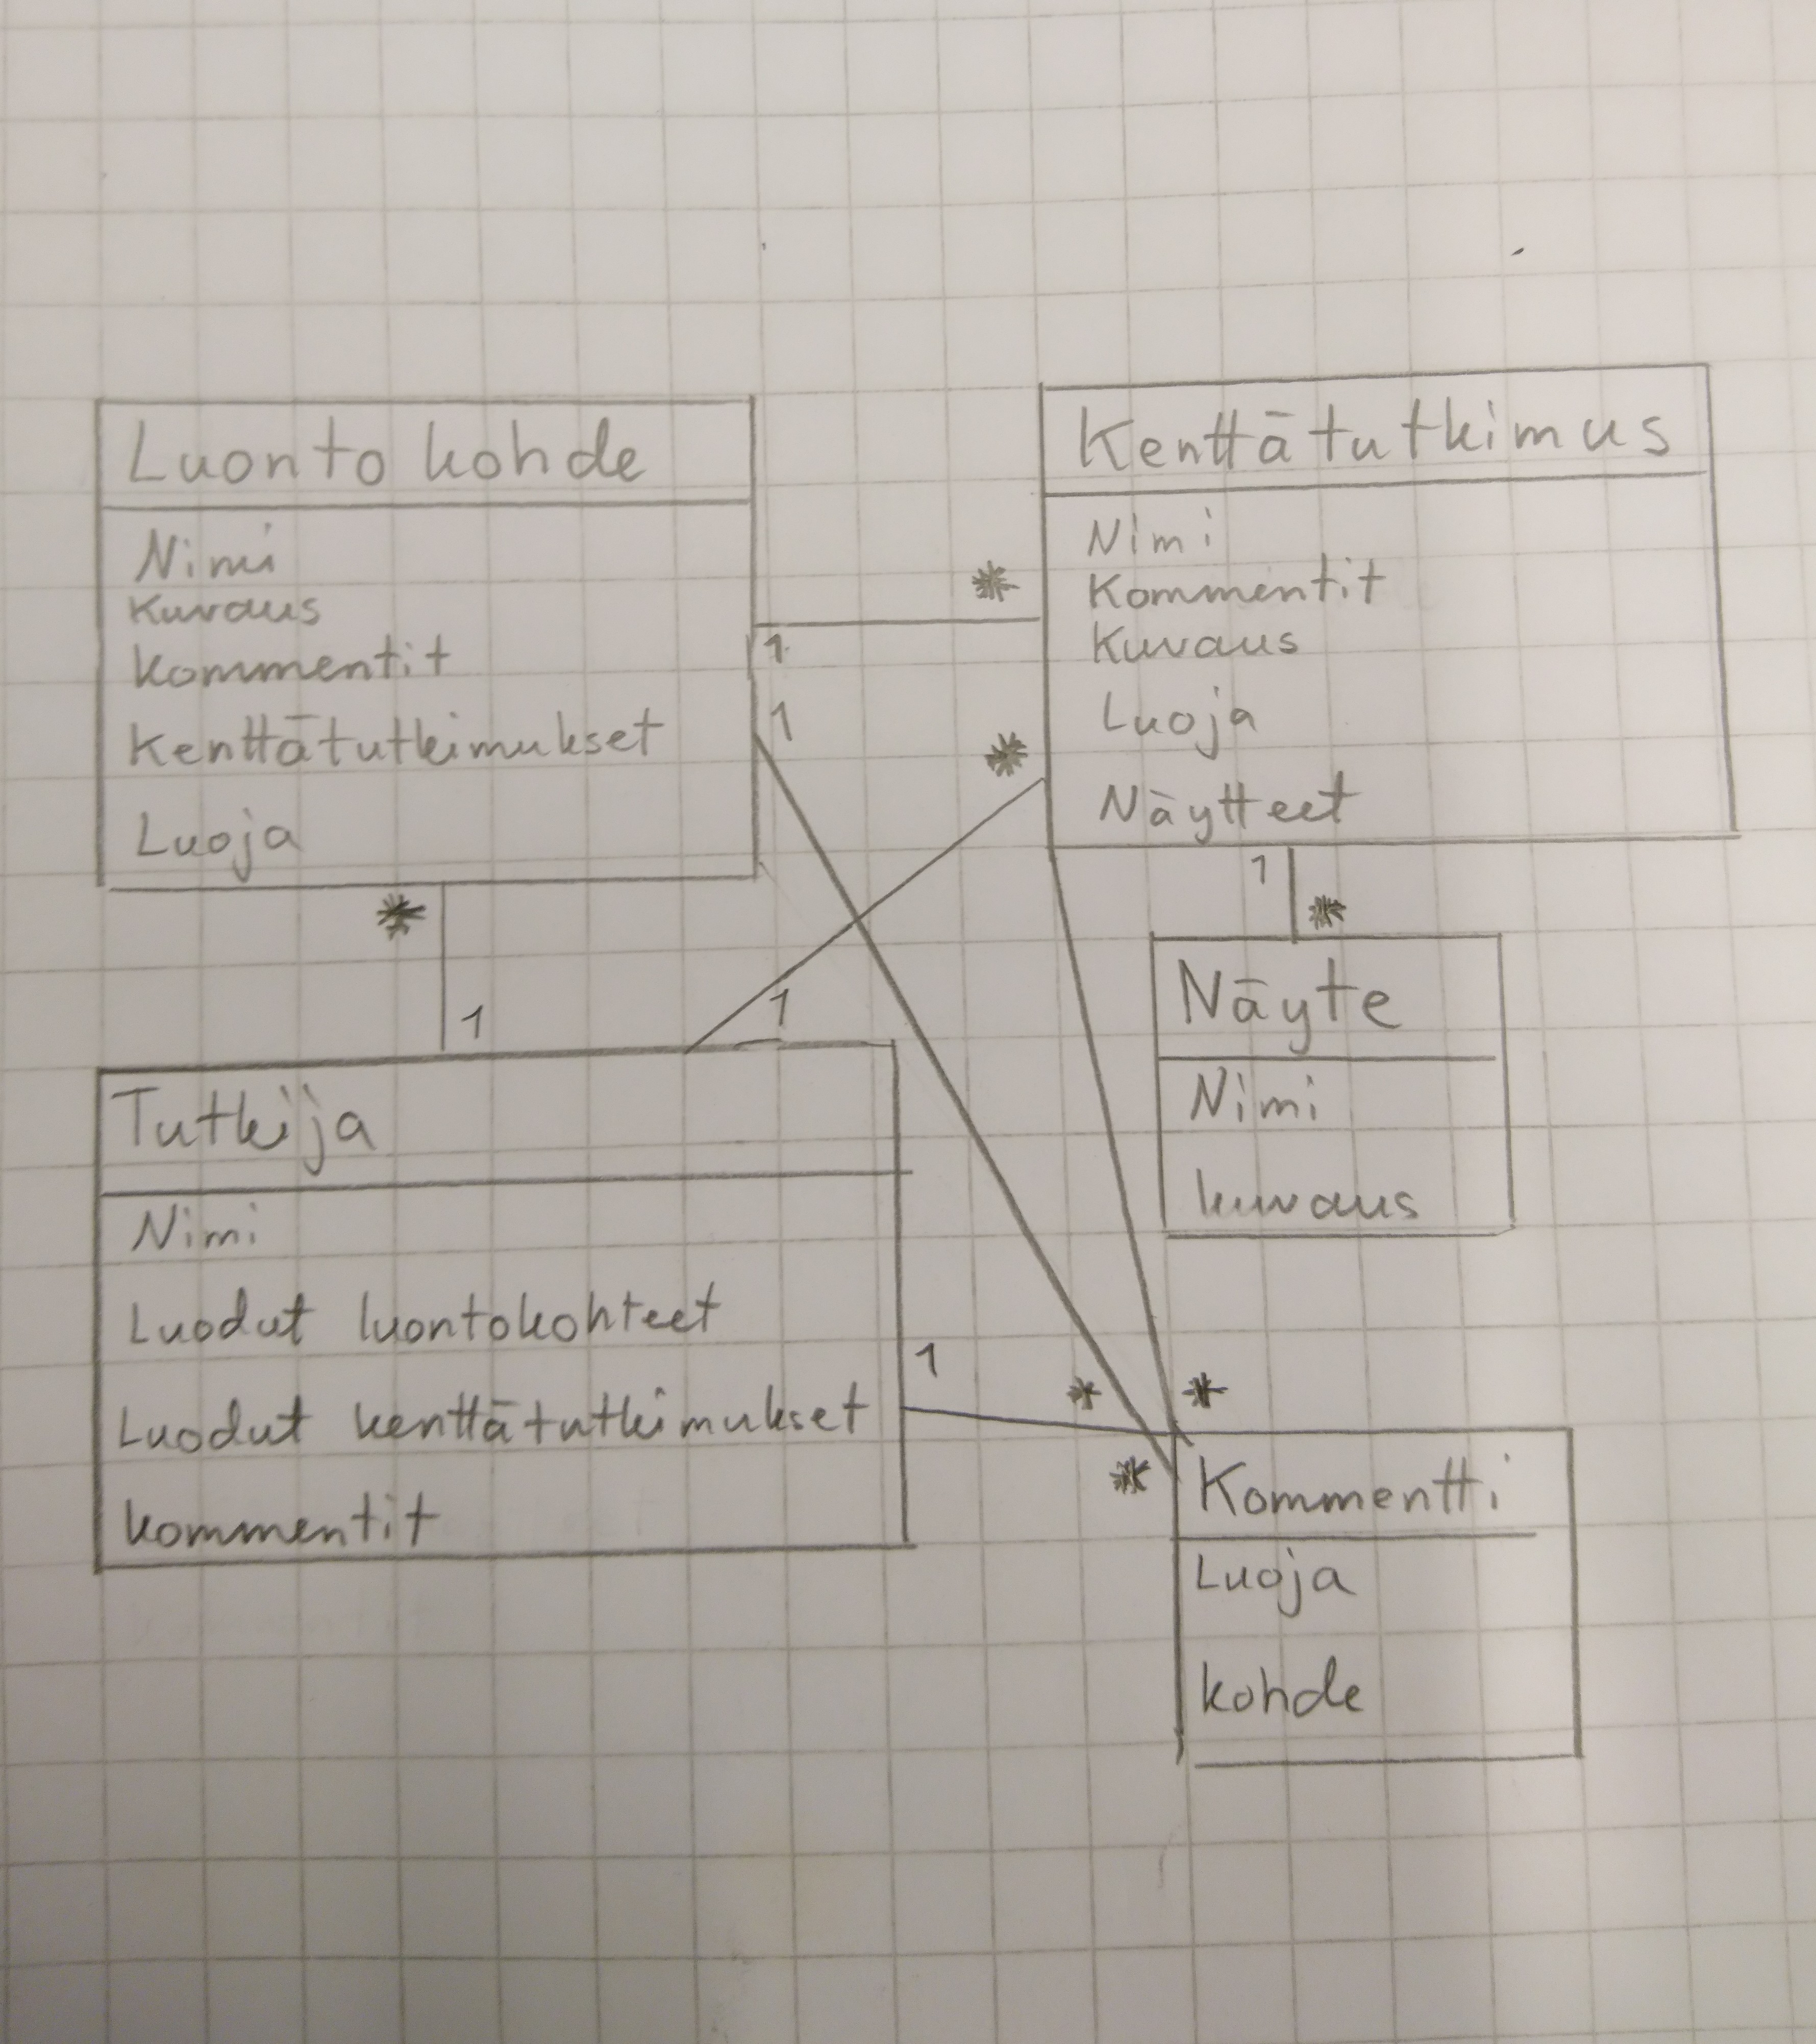 Luonto kohde
Nimi
Kuvaus
kommentit
Kenttätutkimukset
Luoja
Kenttätutkimus
Nimi
Kommentit
Kuvaus
Luoja
Näytteet
*
1
1
*
*
1
1
1
*
Näyte
Nimi
kuvaus
Tutkija
Nimi
Luodut luontokohteet
Luodut kenttätutkimukset
kommentit
1
*
*
*
Kommentti
Luoja
kohde